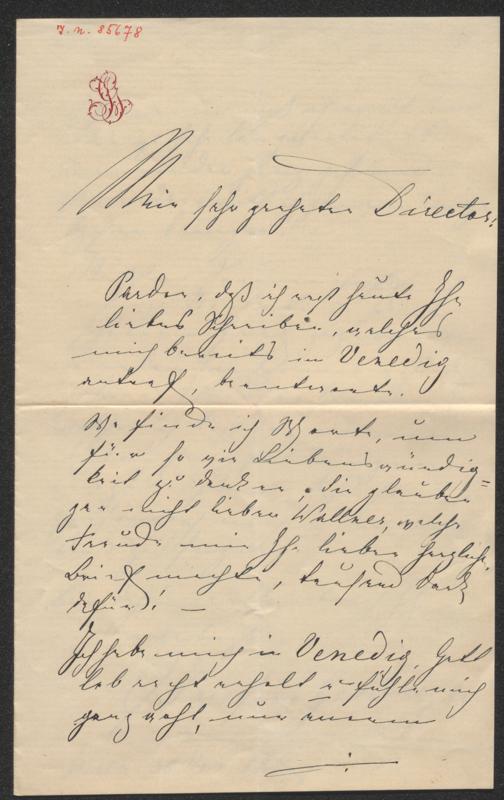 J. N. 85678
Mein sehr geehrter Director!
Pardon, daß ich erst heute Ihr
liebes Schreiben, welches
mich bereits in Venedig
antraf, beantworte.
Wo finde ich Worte, um
für so viel Liebenswürdig=
keit zu danken, Sie glauben
gar nicht lieber Wallner, welche
Freude mir Ihr lieber herzlicher
Brief machte, tausend Dank
dafür! —
Ich habe mich in Venedig, Gott
lob recht erholt u. fühle mich
ganz wohl, nur